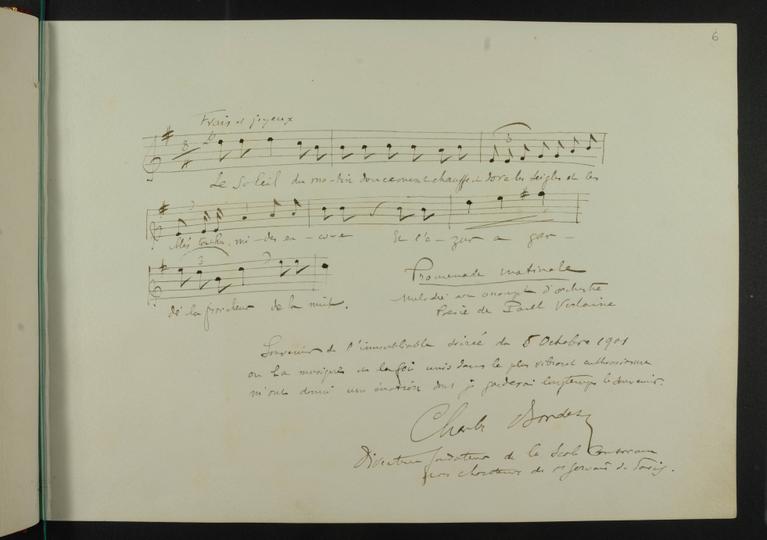 6
Frais et joyeux
Le Soleil du ma-tin doucement chauffe et dore les seigles et les
blés tout hu-mi-des en-core Et l'a-zur a gar-
dé la fraîcheur de la nuit.
Promenade matinale
Mélodie avec accompt d'orchestre
Poésie de Paul Verlaine
Souvenir de l'inoubliable soirée du 8 Octobre 1901
où la musique et la foi unis dans le plus vibrant enthousiasme
m'ont donné une émotion dont je garderai longtemps le souvenir.
Charles Bordes
Directeur fondateur de la Schola Cantorum
des chanteurs de St Gervais de Paris.